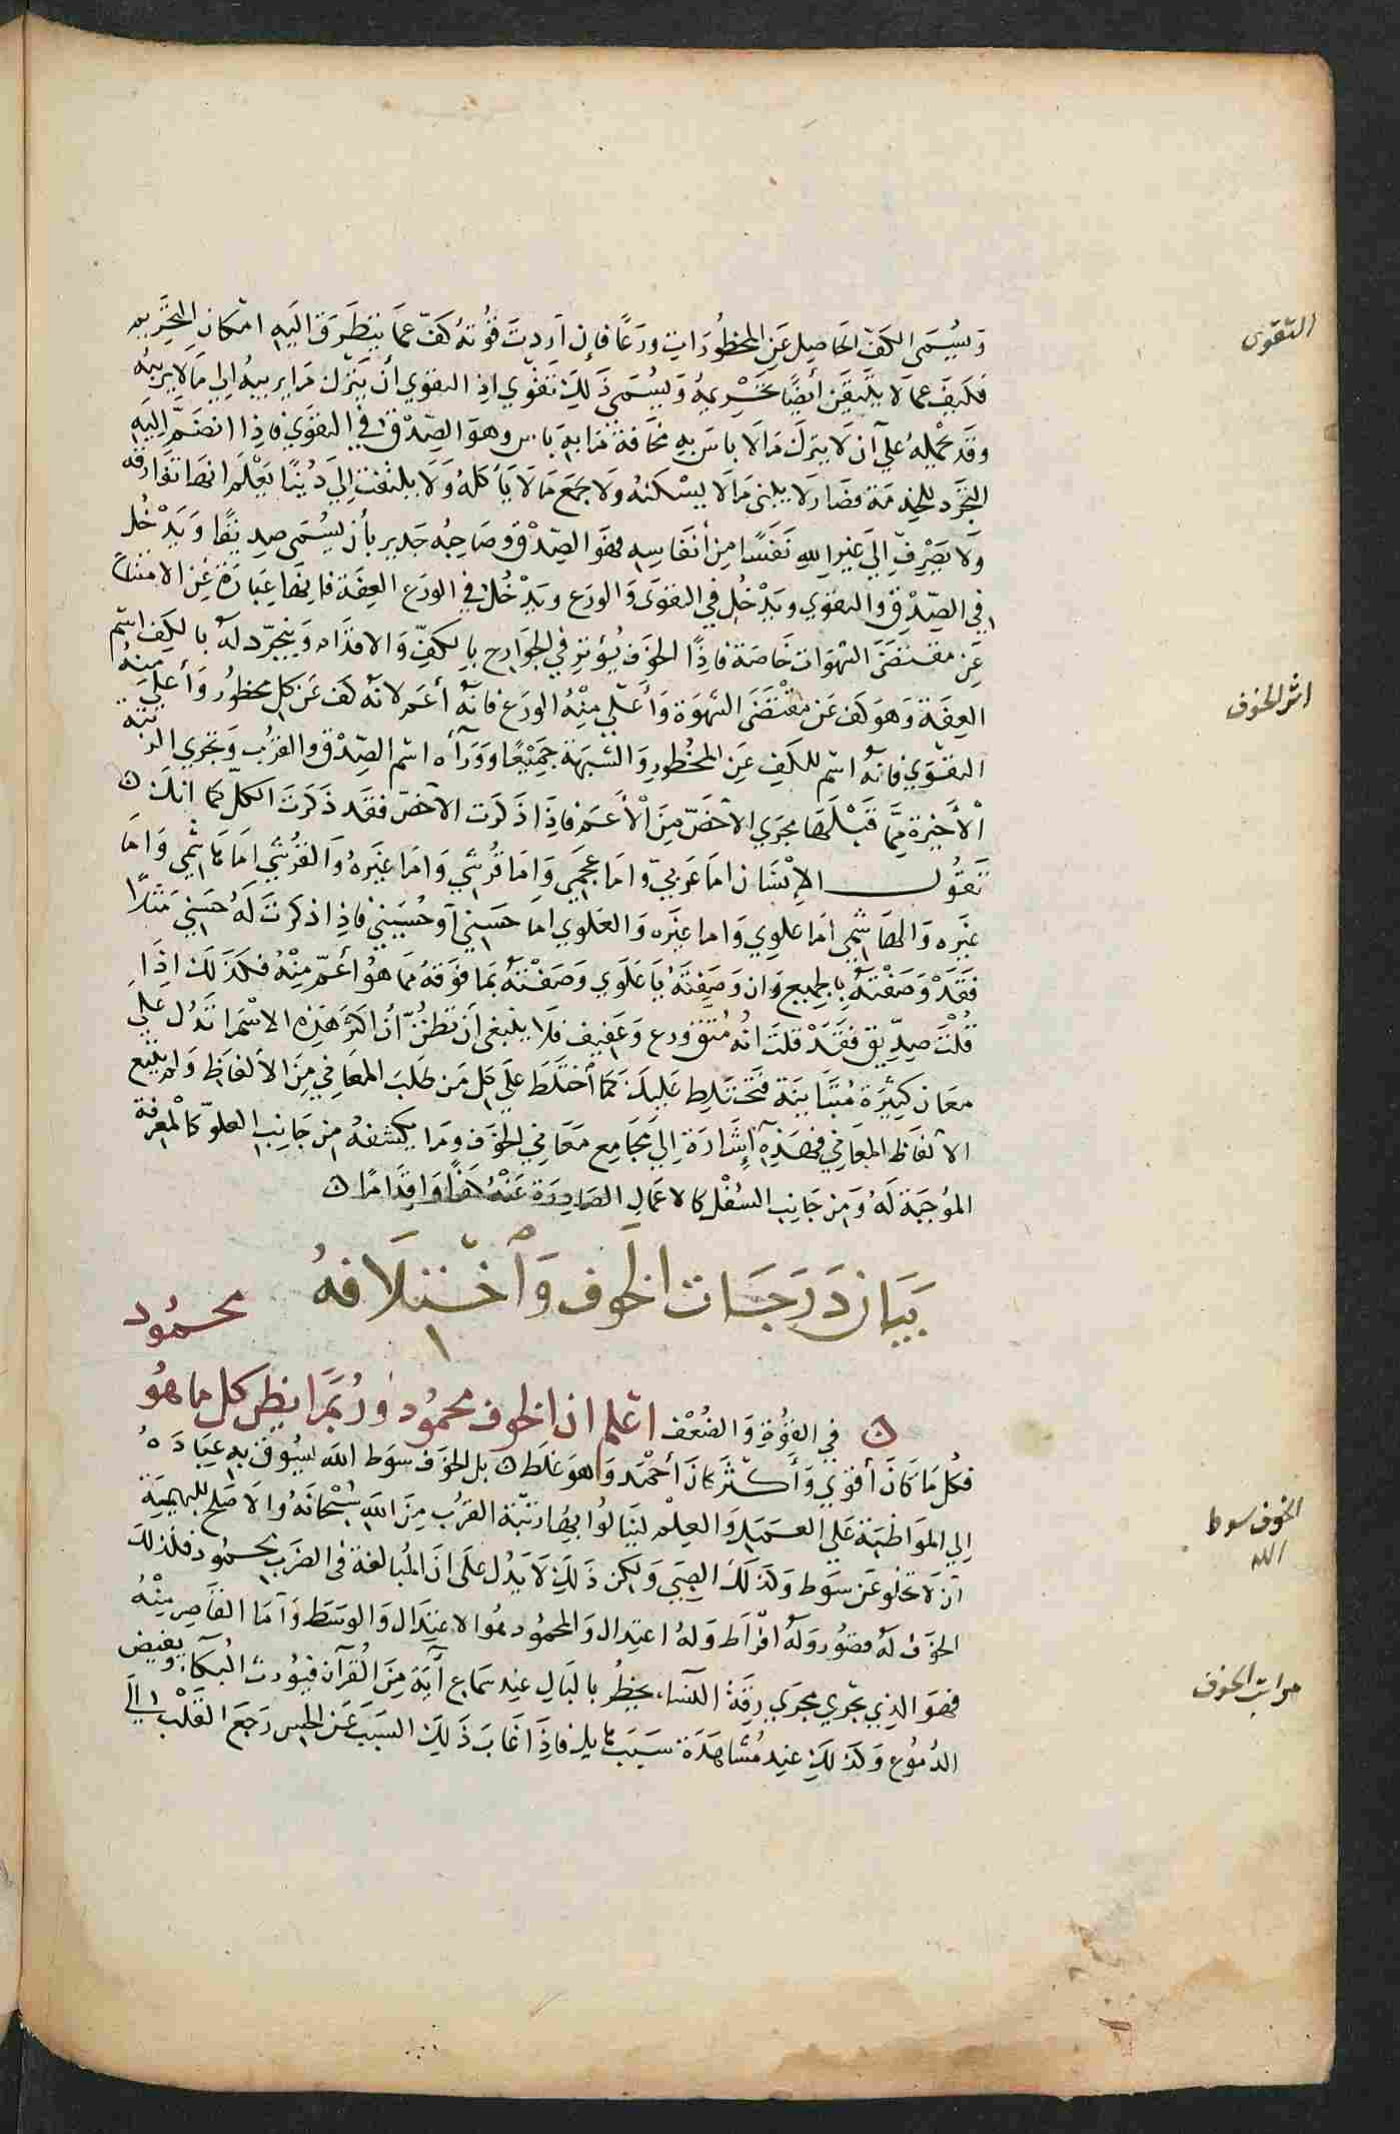 وَيُسَمى الكَفّ الحَاصِل عَنِ المحظُورَاتِ ورَعًا فإن اَردتَ قُوّتهُ كَفّ عمَا يتطَرق اليَهِ امكان التحَريم
فَكَيفَ عما لا يتيقَن أيضًا تحَريمهُ وَيُسَمى ذَلِكَ تَقوَي اذِ التقوي أن يَترك مَا يريبهُ اِلي مَا لا يريبُه
وقَد يحمِلهُ علَى أن لَا يترَك مَا لَا باسَ بهِ مخَافةَ مَا بهِ بَاس وهوَ الصِّدْق في التقوَي فاذِا انضَمّ اليَهِ
التجَرّد للخِدمَة فصَار لَا يبنى مَا لَا يسْكنهُ ولَا يجمَع مَا لَا يَأكلهُ وَلَا يلتفت اِلي دُنيًا يَعْلم انهَا تفَارقه
ولَا يَصْرِف اِلَى غير اللهِ نفَسًا مِن أنفَاسِهِ فهوَ الصِّدْق وصَاحِبُه جَدير بأن يُسَمى صِديقًا وَيَدْخُل
في الصِّدْق والتقوَي ويَدْخُل في التقوَى وَالورَع ويَدْخُل في الورَع العِفَة فانِهَا عِبارَة عَنِ الامتناع
عَن مقتضَى الشهوَات خَاصَة فاذِاً الخوَف يُؤثِر في الجوَارح بالكَفِّ وَالاقدَام وَيتجَرّد لهُ بالكَف اسْم
العِفَة وَهوَ كَف عَن مقْتضَى الشَهوَة وَأعْلى مِنْهُ الورَع فانهُ أعَم لانهُ كَف عَن كل محظُور وَأعلى مِنهُ
التقوَي فانهُ اسْم للكَف عَنِ المحْظُورِ وَالشبهَة جَمِيْعًا وَوَرَآهُ اسْم الصِّدْق والقرُب وَتجرَي الرتبَة
الْأخيرَة مما قَبْلهَا مجرَي الاخصّ مِنَ الْأعَم فاذِا ذكَرت الاخصّ فقَد ذَكَرت الكلّ كما انكَ
تَقُول الإنسَان اما عَرَبيّ وامَا عَجَمي وَامَا قُرشي وَامَا غيَرهُ وَالقرُشي امَا هَاشمي وَامَا
غيَره وَالهَاشمي امَا علوِي وَاما غيَره وَالعَلوي امَا حَسَني أو حُسَيني فاذِا ذكرتَ لهُ حَسَني مَثلًا
فَقَدْ وَصَفتهُ بالجميع وَان وَصَفتهُ بِعَلَوي وَصَفتهُ بمَا فوَقهُ مما هوُ أعَمّ مِنْهُ فكذَلكَ اِذَا
قُلْتَ صِدِّيق فقَدْ قلتَ انهُ مُتَّق ورع وَعَفِيف فَلَا ينبَغي اَن تظُنّ أن اكثر هَذِهِ الاسْما تَدُل علَى
معَان كثِيَرة مُتَبَاينَة فَتختَلِط عَليكَ كما أختَلطَ علَى كل مَن طَلبَ المعَاني مِنَ الألفاظِ وَلم يتبع
الألفَاظ المعَاني فهذهِ إشَارَة إِلَى مجَامع مَعَاني الخوَف ومَا يكتنفهُ مِن جَانِب العلوّ كالمعرفة
الموُجبَة لهُ وَمِن جَانِب السُفْل كالاعمَال الصَادِرَة عَنْهُ كَفًّا وَاِقدَامًا
بَيَان دَرَجَات الخَوف وَٱخْتلَافهُ
محمُود
في القوُة وَالضُعْف اعْلم ان الخوف محمُود ورُبمَّا يظن كل ما هُو
فكُل مَا كَانَ أقوَي وَأكثَر كانَ أحْمَد وَهوَ غلَط بل الخوَف سوَط الله يسُوق بهِ عِبَادَهُ
إِلي الموَاظبَة عَلي العَمَلِ وَالعِلْم ليَنالُوا بهِمَا رتبَة القرُب مِنَ اللهِ سُبْحَانَهُ وَالاصَلح للبهيمَة
أن لَا تخلو عَن سَوط وَكَذَلكَ الصَبي وَلكِن ذَلِكَ لَا يَدُل علَى أنَ المُبَالغَة في الضَرَب محمُود فكذَلكَ
الخوَف لهُ قصُور وَلهُ افرَاط وَلهُ اعتِدال وَالمحمُود هوُ الاعتِدَال وَالوسَط وَأمَا القاَصِر مِنْهُ
فهوَ الذِي يجرِي مجرَي رِقَةُ النسَاء يخطُر بالبَال عِند سَمَاع آيَة مِنَ القُرآن فيوُرث البُكآ وَيفِيض
الدُموُع وَكذَلكَ عِندَ مُشَاهَدَة سَبَب هَايل فاذَا غَابَ ذَلِكَ السَبَب عَنِ الحِس رَجَع القَلْب اِلَى
التقوى
اثر الخوف
الخوف سوط
الله
مراتب الخوف